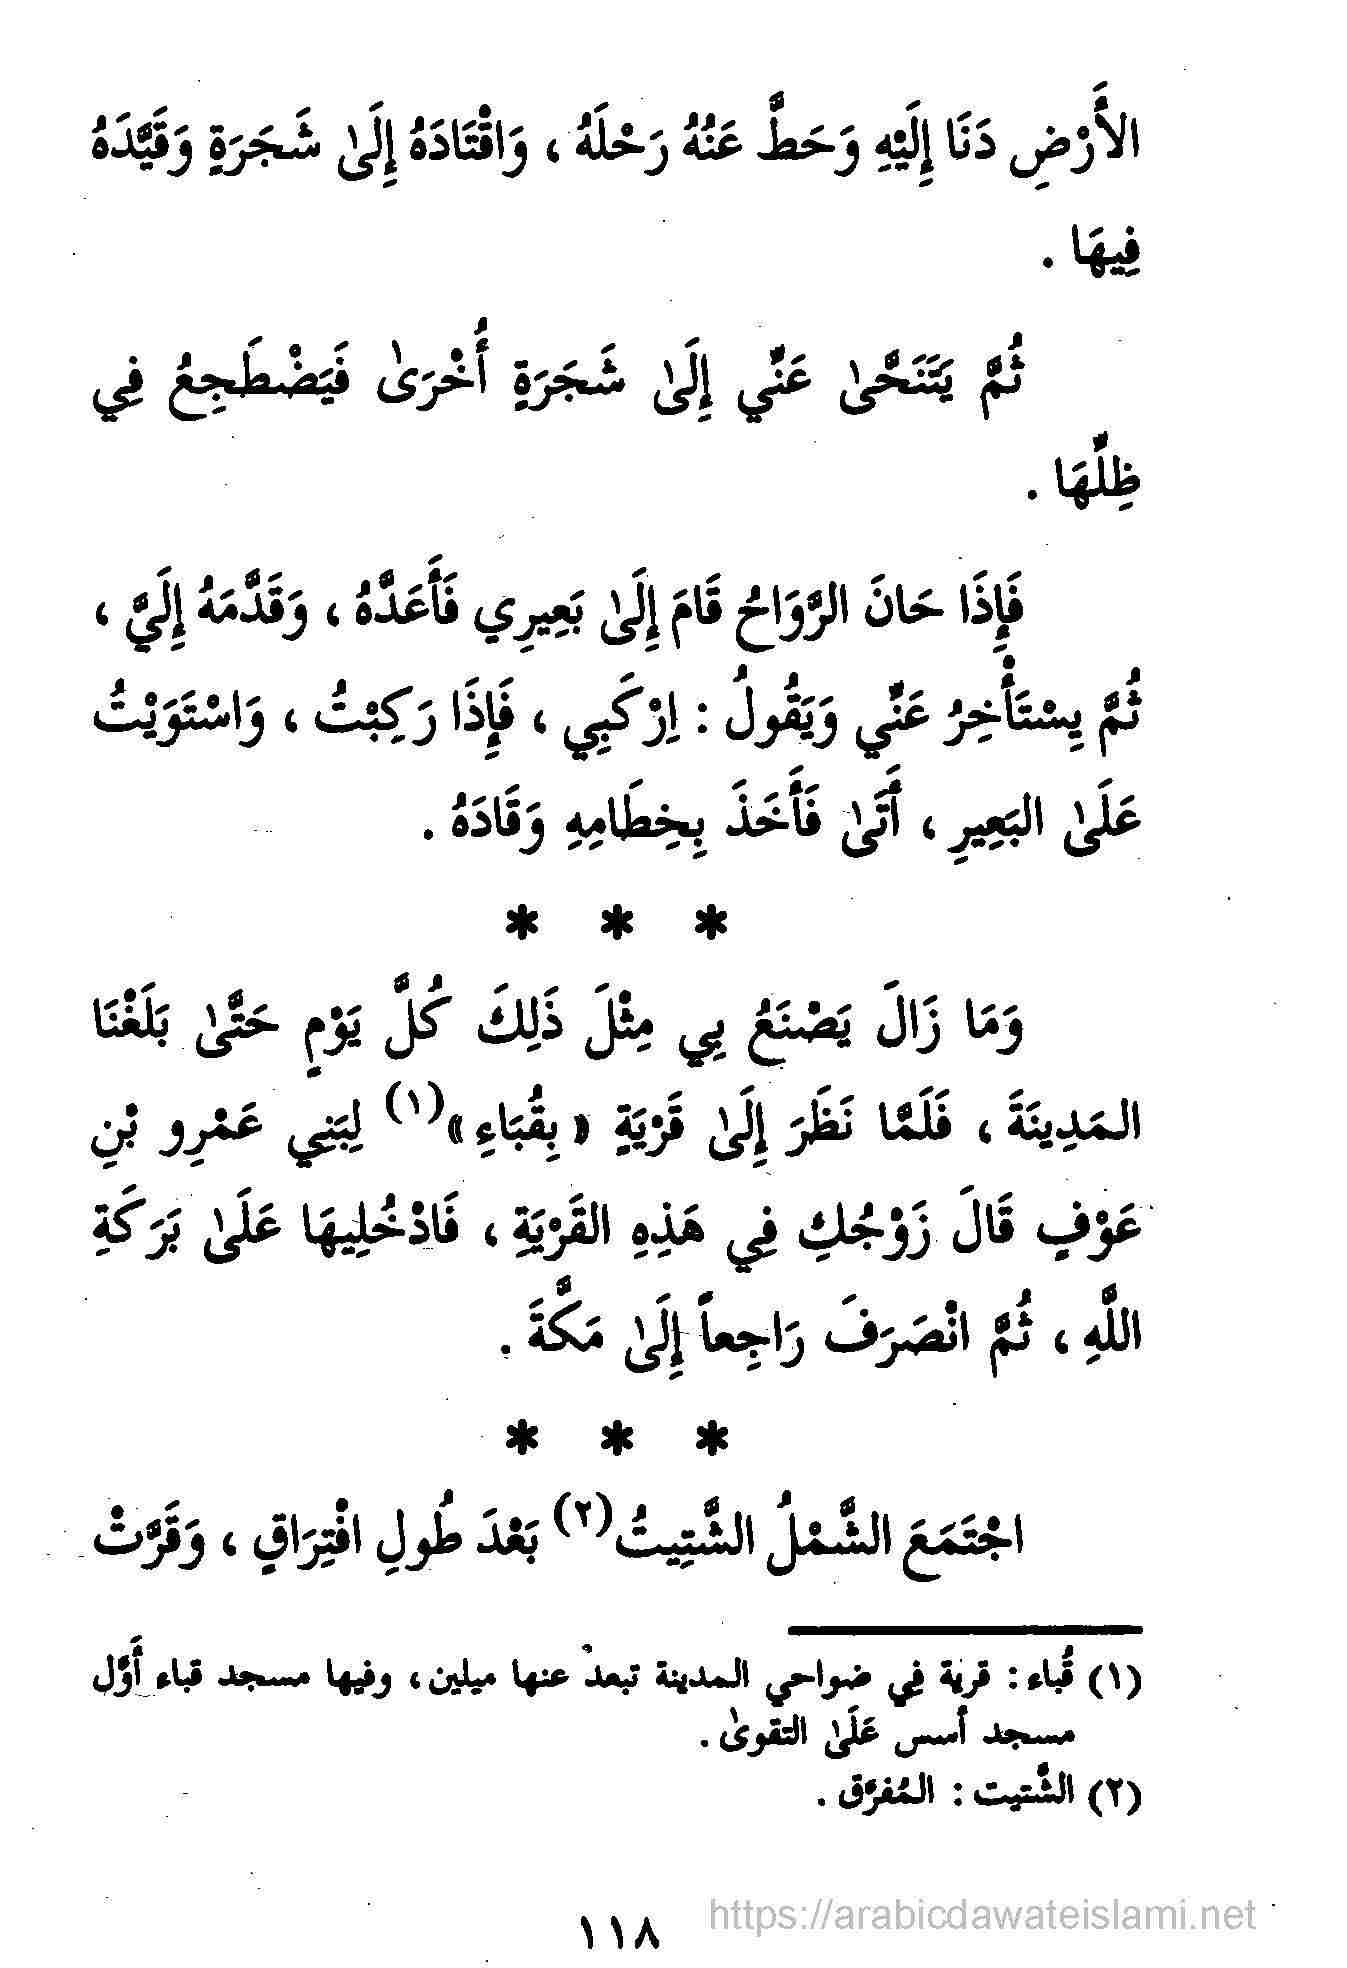 الأَرْضِ دَنَا إِلَيْهِ وَحَطَّ عَنْهُ رَحْلَهُ ، وَاقْتَادَهُ إِلَىٰ شَجَرَةٍ وَقَيَّدَهُ
فِيهَا .
ثُمَّ يَتَنَحَّىٰ عَنِّي إِلَىٰ شَجَرَةٍ أُخْرَىٰ فَيَضْطَجِعُ فِي
ظِلِّهَا .
فَإِذَا حَانَ الرَّوَاحُ قَامَ إِلَىٰ بَعِيرِي فَأَعَدَّهُ ، وَقَدَّمَهُ إِلَيَّ ،
ثُمَّ يِسْتَأْخِرُ عَنِّي وَيَقُولُ : اِرْكَبِي ، فَإِذَا رَكِبْتُ ، وَاسْتَوَيْتُ
عَلَىٰ البَعِيرِ ، أَتَىٰ فَأَخَذَ بِخِطَامِهِ وَقَادَهُ .
* * *
وَمَا زَالَ يَصْنَعُ بِي مِثْلَ ذَلِكَ كُلَّ يَوْمٍ حَتَّىٰ بَلَغْنَا
المَدِينَةَ ، فَلَمَّا نَظَرَ إِلَىٰ قَرْيَةٍ « بِقُبَاءِ »(١) لِبَنِي عَمْرِو بْنِ
عَوْفٍ قَالَ زَوْجُكِ فِي هَذِهِ القَرْيَةِ ، فَادْخُلِيهَا عَلَىٰ بَرَكَةِ
اللَّهِ ، ثُمَّ انْصَرَفَ رَاجِعاً إِلَىٰ مَكَّةَ .
* * *
اجْتَمَعَ الشَّمْلُ الشَّتِيتُ(٢) بَعْدَ طُولِ افْتِرَاقٍ ، وَقَرَّتْ
(١) قُباء : قرية فِي ضواحي المدينة تبعدُ عنها ميلين ، وفيها مسجد قباء أَوَّل
مسجد أسس عَلَىٰ التقوىٰ .
(٢) الشَّتيت : المُفرَّق .
١١٨
https://arabicdawateislami.net